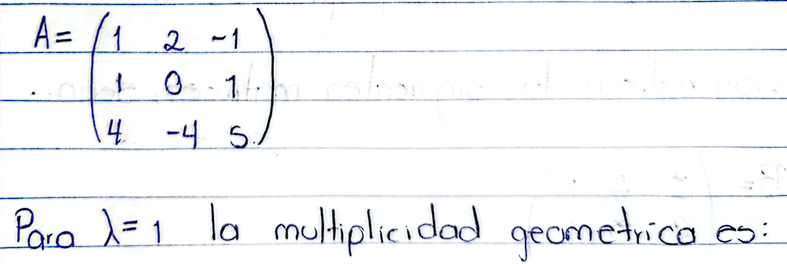 A= (1 2 -1
1 0 1
4 -4 5)
Para λ=1 la multiplicidad geometrica es: